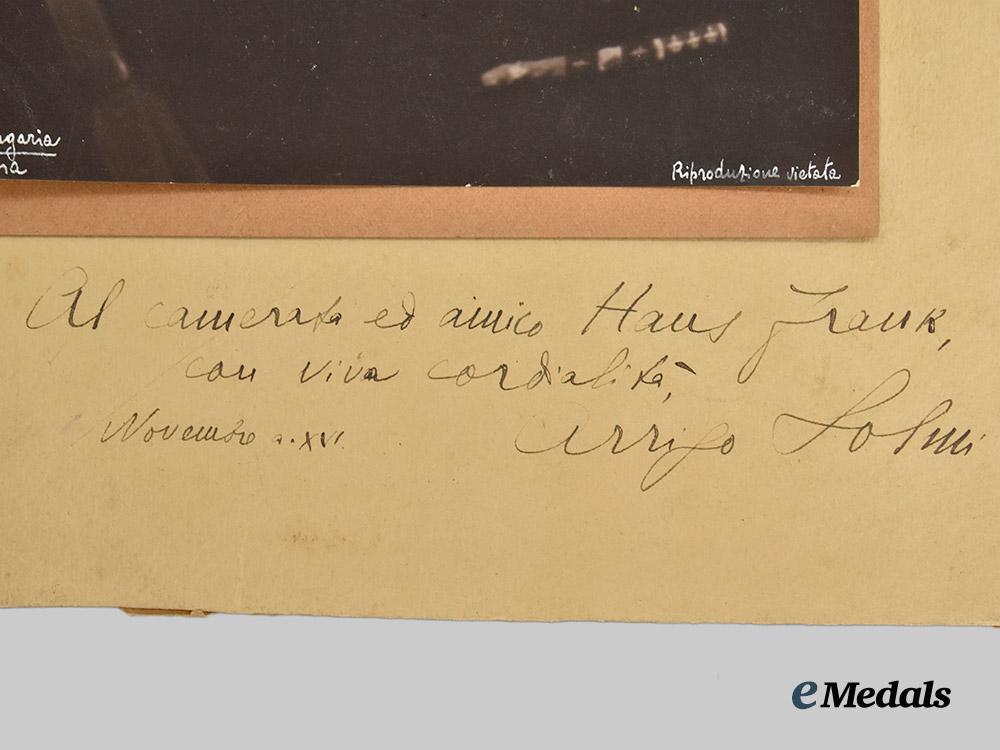 ngaria
ra
Riproduzione vietata
Al camerata ed amico Hans Frank,
con viva cordialità,
Novembre a. XVI.
Arrigo Solmi
eMedals